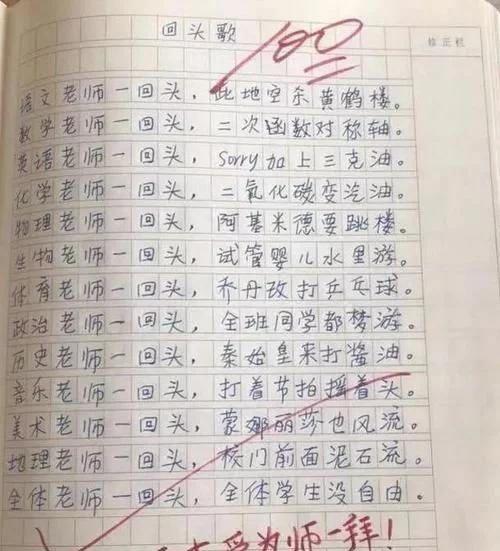 回头歌
100
修正栏
语文老师一回头，此地空余黄鹤楼。
数学老师一回头，二次函数对称轴。
英语老师一回头，sorry加上三克油。
化学老师一回头，二氧化碳变汽油。
物理老师一回头，阿基米德要跳楼。
生物老师一回头，试管婴儿水里游。
体育老师一回头，乔丹改打乒乓球。
政治老师一回头，全班同学都梦游。
历史老师一回头，秦始皇来打酱油。
音乐老师一回头，打着节拍摇着头。
美术老师一回头，蒙娜丽莎也风流。
地理老师一回头，校门前面泥石流。
全体老师一回头，全体学生没自由。
受为师一拜！